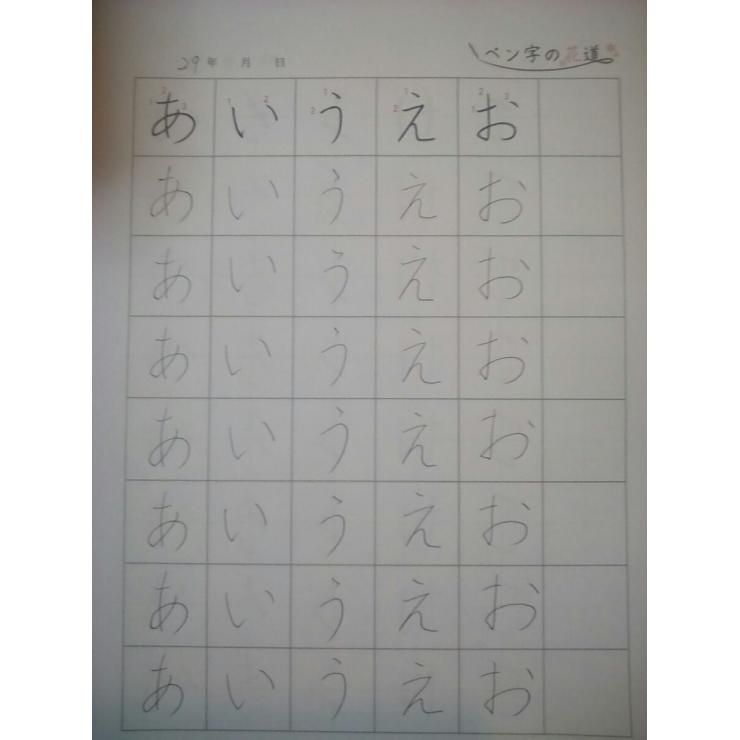 29年 月 日 ペン字の花道
あ い う え お
あ い う え お
あ い う え お
あ い う え お
あ い う え お
あ い う え お
あ い う え お
あ い う え お